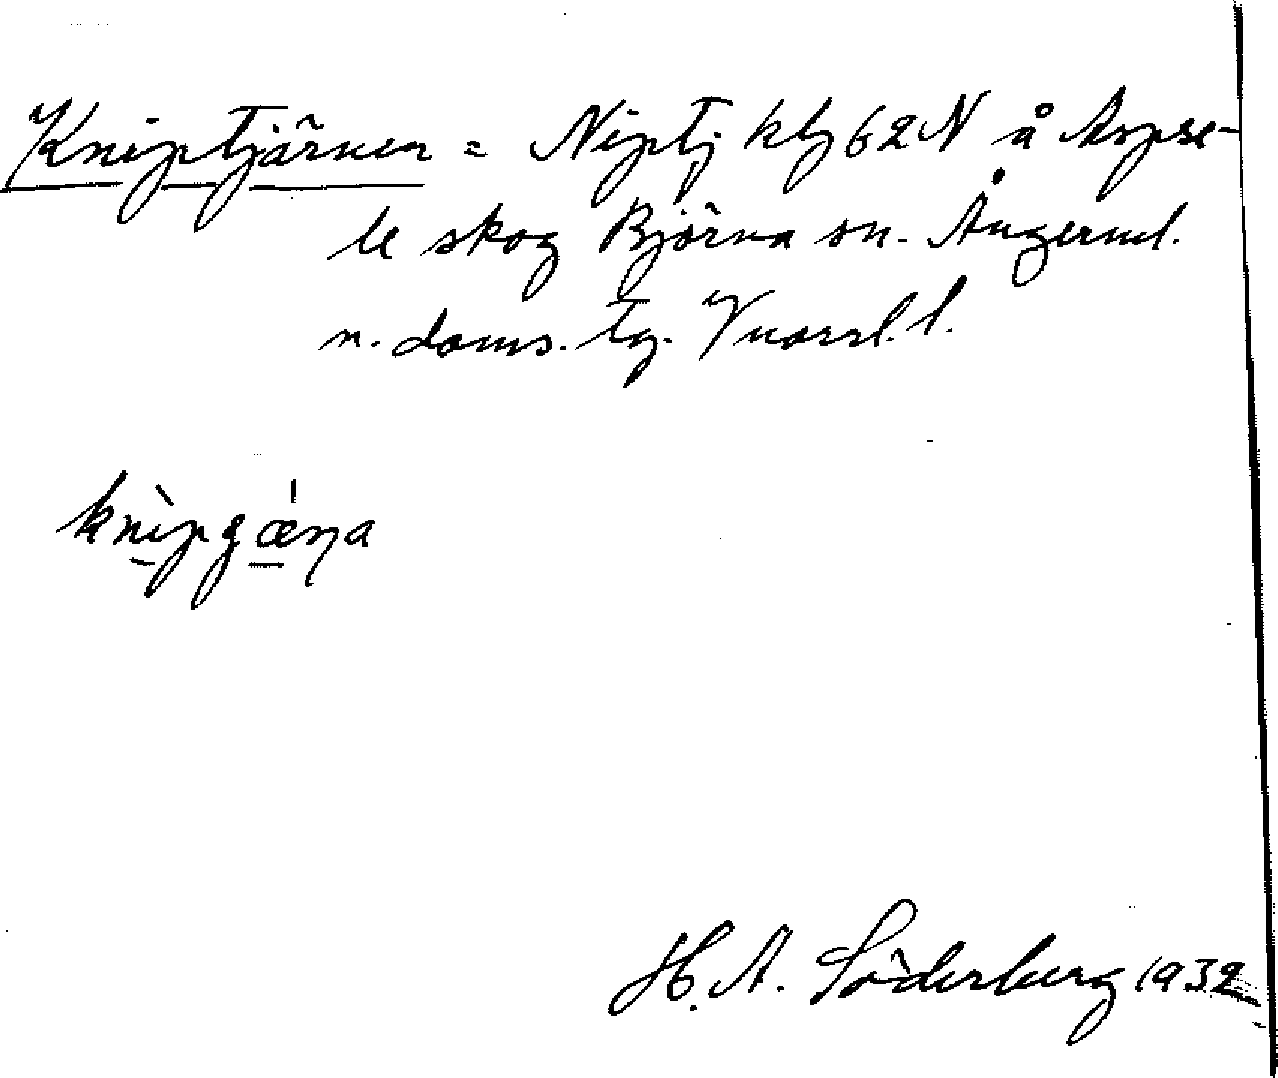 Kniptjärnen = Niptj kbl 62 N å Aspse-
le skog Björna sn. Ångerml.
n. doms. tg. Vnorrl. l.
knìpgæ̀ṇa
H. A. Söderberg 1932